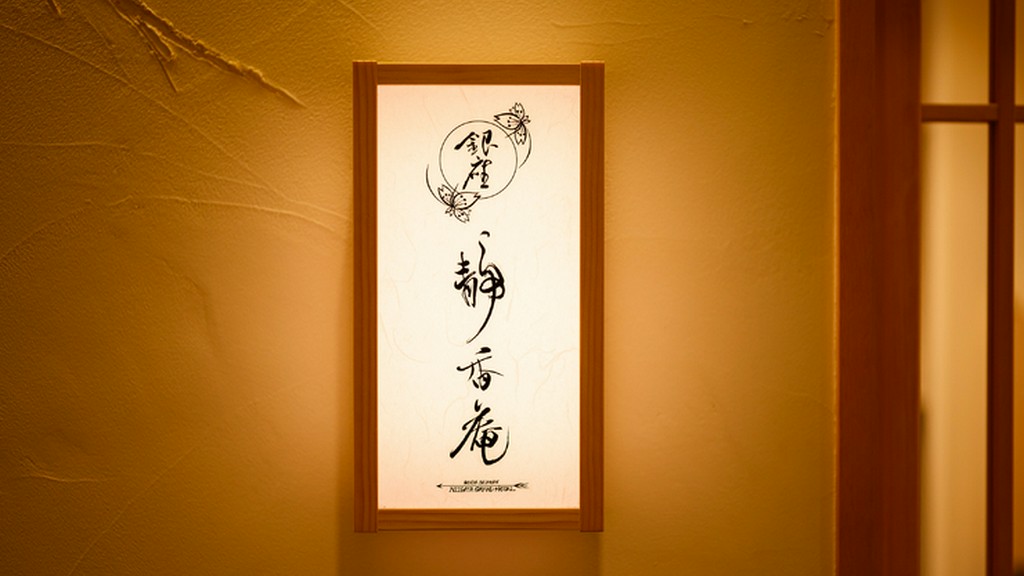 銀座
静香庵